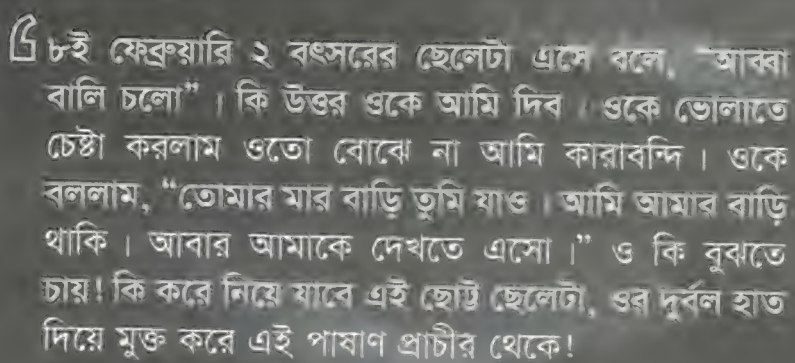 “৮ই ফেব্রুয়ারি ২ বৎসরের ছেলেটা এসে বলে, “আব্বা
বালি চলো” । কি উত্তর ওকে আমি দিব । ওকে ভোলাতে
চেষ্টা করলাম ওতো বোঝে না আমি কারাবন্দি । ওকে
বললাম, “তোমার মার বাড়ি তুমি যাও । আমি আমার বাড়ি
থাকি । আবার আমাকে দেখতে এসো ।” ও কি বুঝতে
চায়! কি করে নিয়ে যাবে এই ছোট্ট ছেলেটা, ওর দুর্বল হাত
দিয়ে মুক্ত করে এই পাষাণ প্রাচীর থেকে!